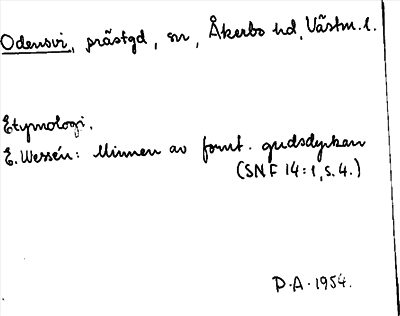 Odensvi, prästgd, sn, Åkerbo hd, Västm. l.
Etymologi.
E. Wessén: Minnen av fornt. gudsdyrkan
(SNF 14:1, s. 4.)
P.A. 1954.